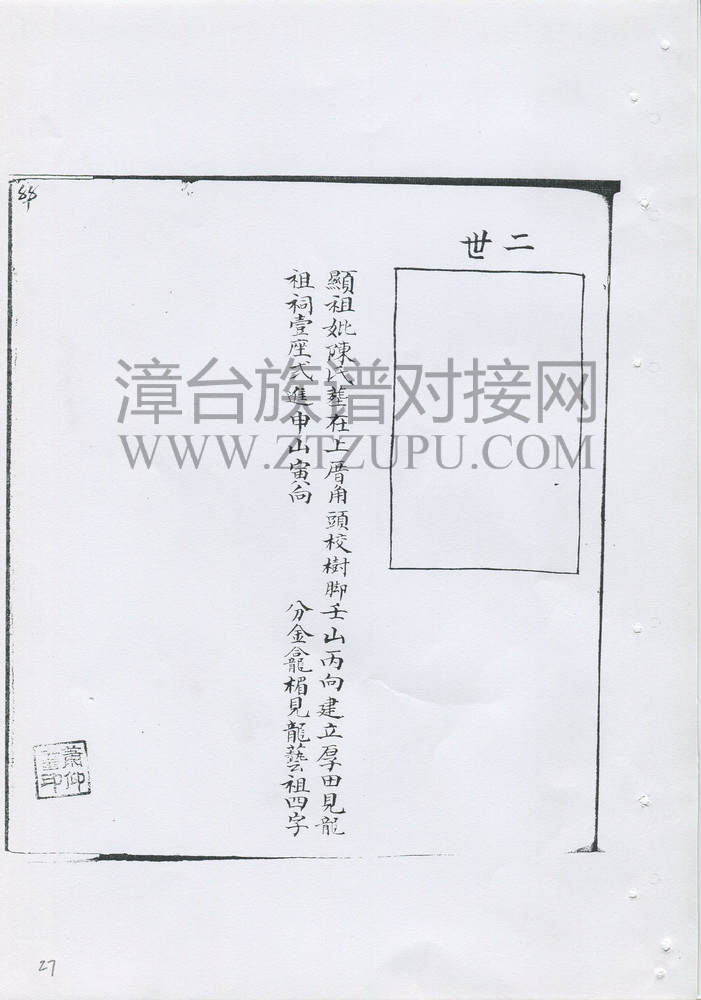 二世
顯祖妣陳氏塟在上厝角頭校樹脚壬山丙向建立厚田見龍
祖祠壹座弍進申山寅向 分金龕龍楣見龍藝祖四字
漳台族谱对接网
WWW.ZTZUPU.COM
27